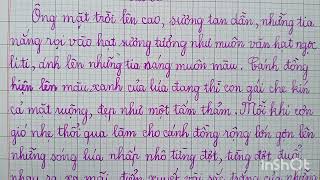 Ông mặt trời lên cao, sương tan dần, những tia
nắng rọi vào hạt sương tưởng như muôn vàn hạt ngọc
li ti, ánh lên những tia sáng muôn màu. Cánh đồng
hiện lên màu xanh của lúa đang thì con gái che kín
cả mặt ruộng, đẹp như một tấm thảm. Mỗi khi cơn
gió nhẹ thổi qua làm cho cánh đồng rộng lớn gợn lên
những sóng lúa nhấp nhô từng đợt, từng đợt đuổi
nhau ra xa mãi, điểm xuyết
InShot